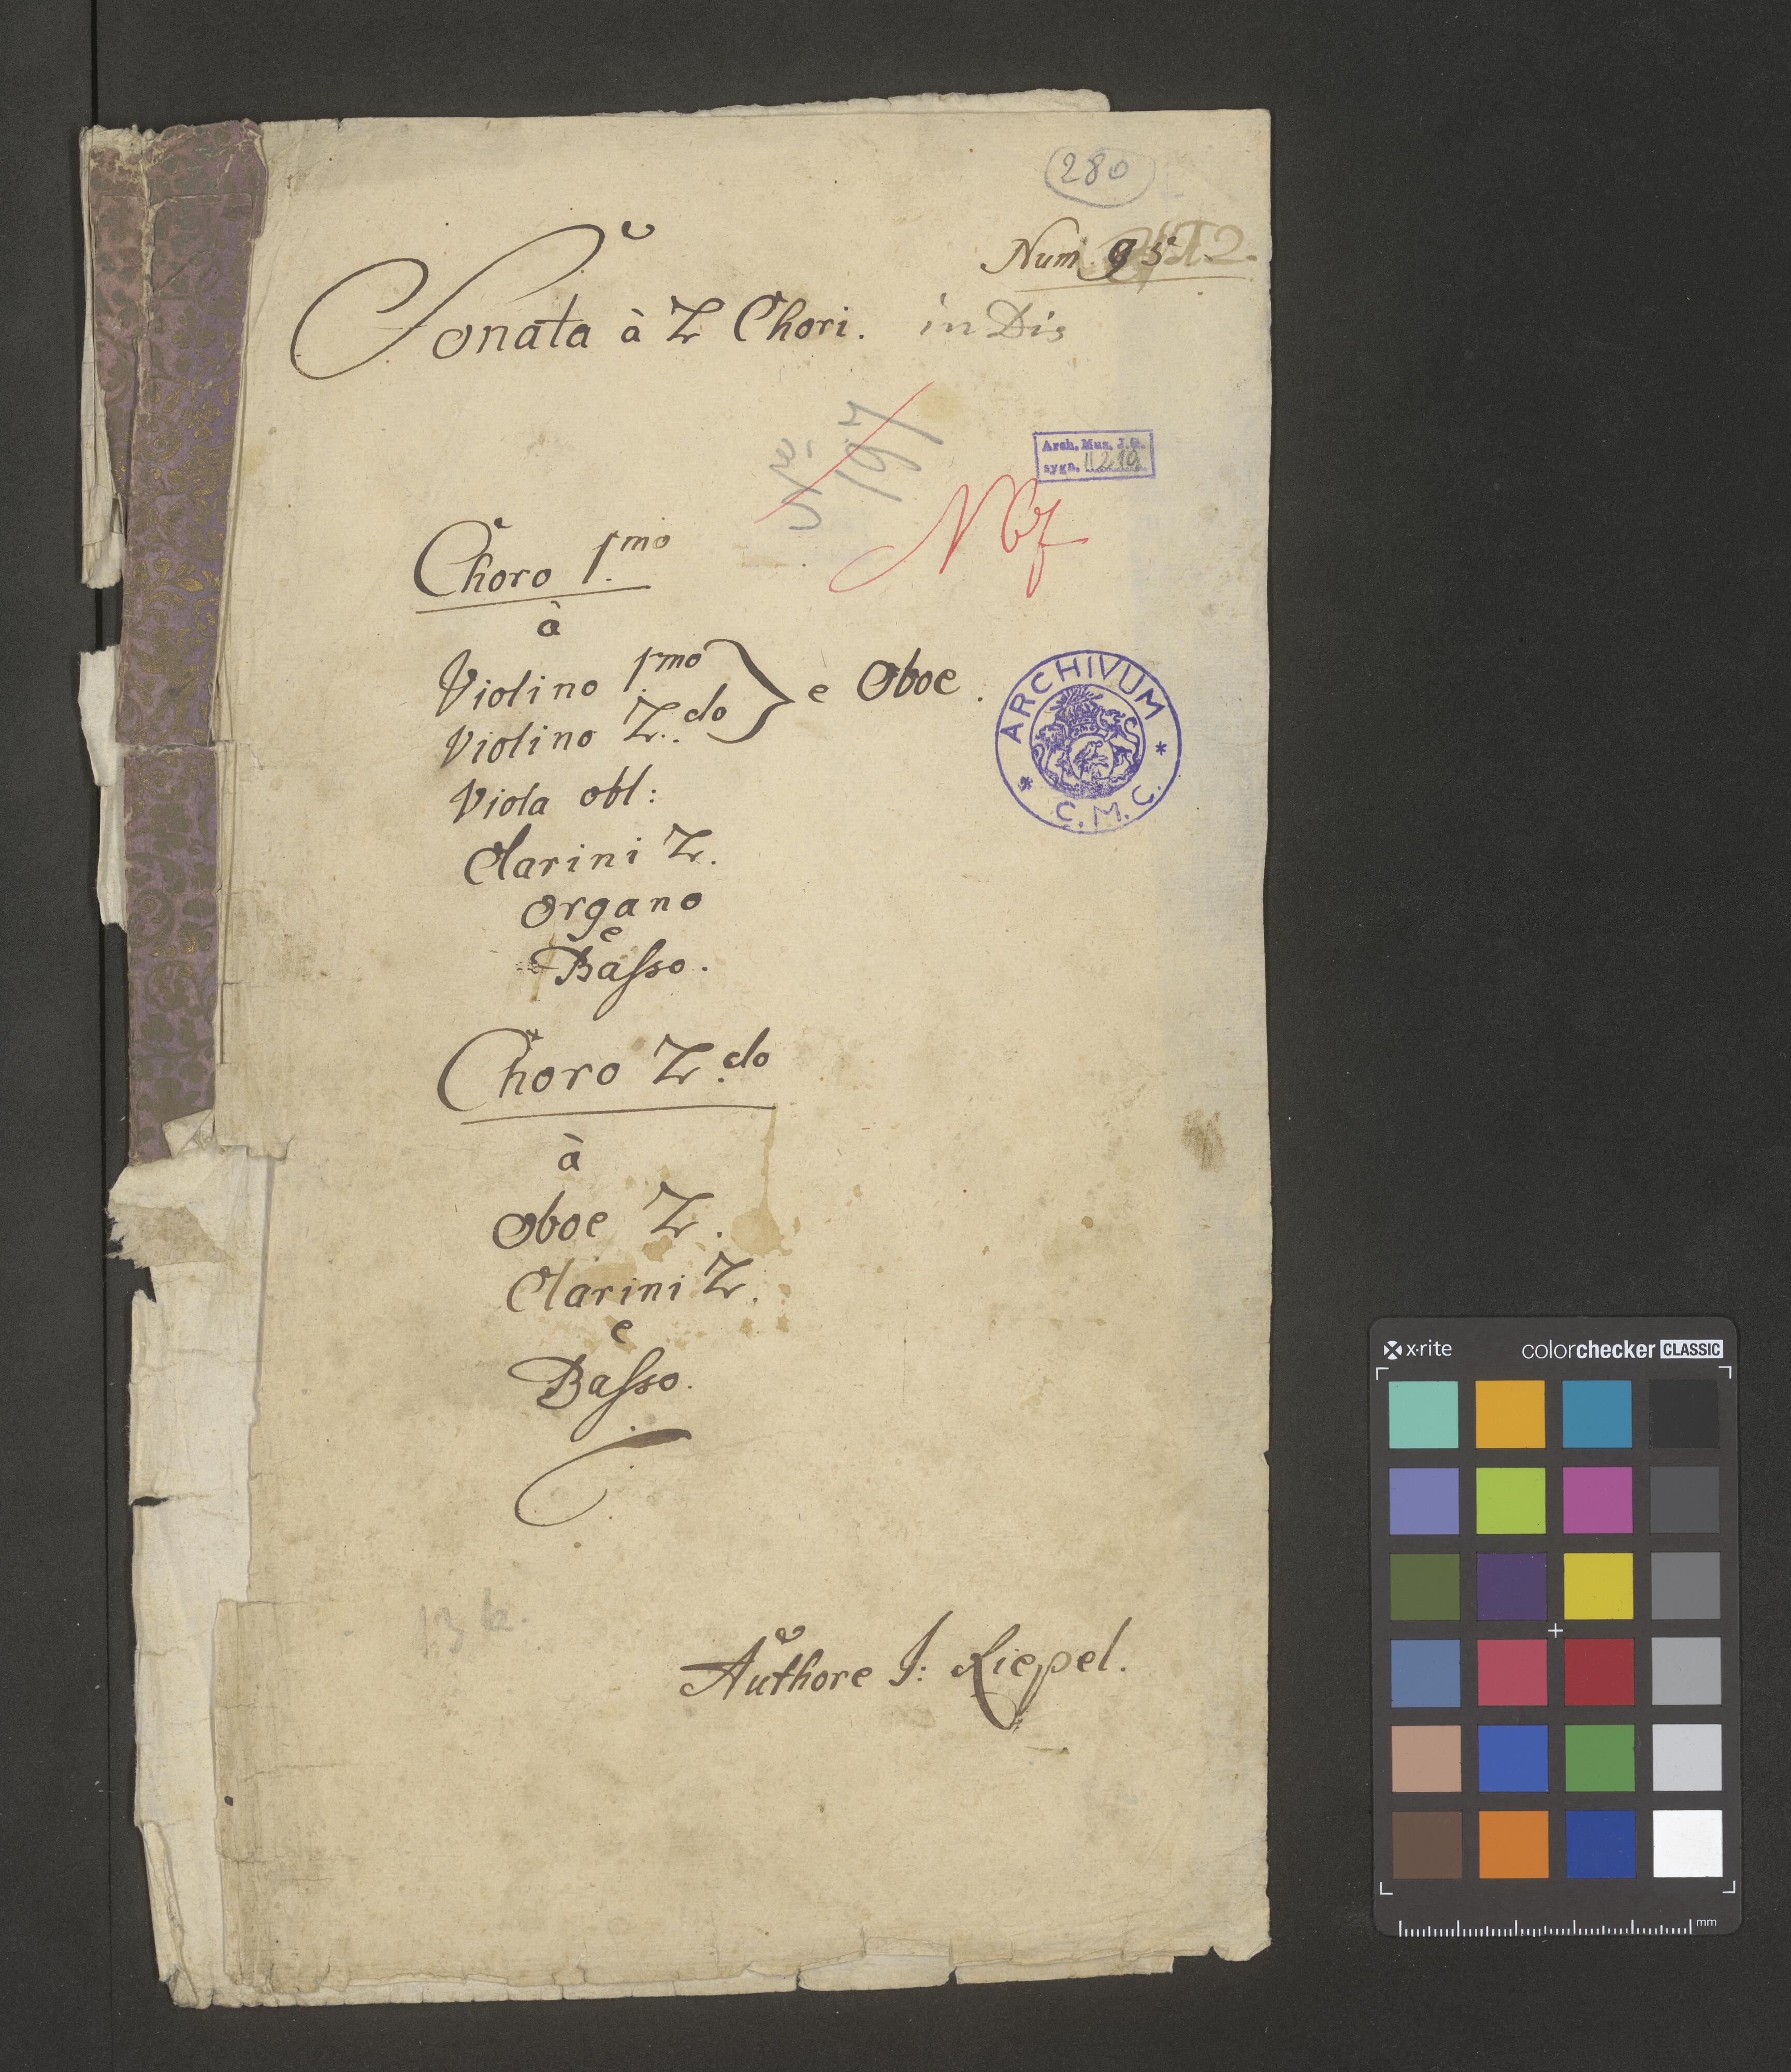 280
Num. 95
Sonata à 2 Chori. in Dis
No. 197
Arch. Mus. J.G.
sygn. II 219
Choro 1.mo
à
Violino 1.mo
Violino 2.do } e Oboe.
Viola obl:
Clarini 2.
Organo
e
Basso.
ARCHIVUM
* C.M.C. *
Choro 2.do
à
Oboe 2.
Clarini 2.
e
Basso.
13 k.
Authore J: Riepel.
x·rite colorchecker CLASSIC
mm